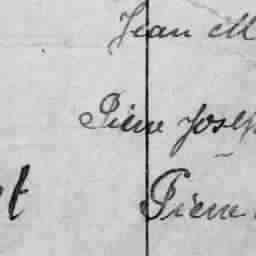 Jean M
Pierre Josep
t Pierre